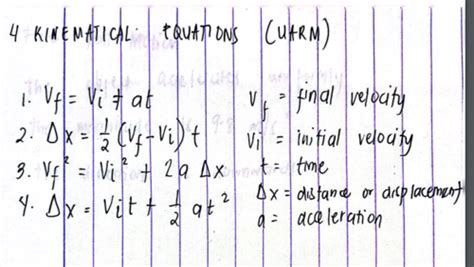 4 KINEMATICAL EQUATIONS (UARM)
1. Vf = Vi + at
2. Δx = 1/2 (Vf - Vi) t
3. Vf² = Vi² + 2a Δx
4. Δx = Vit + 1/2 at²
Vf = final velocity
Vi = initial velocity
t = time
Δx = distance or displacement
a = acceleration